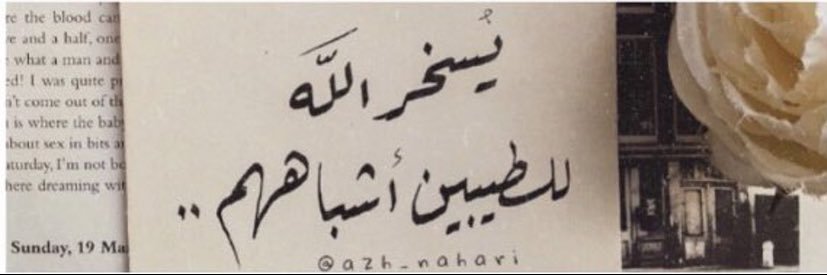 يُسخر اللَّه
للطيبين أشباههم ..
@azh_nahari
re the blood can
ve and a half, one
what a man and
ed! I was quite
n't come out of th
is where the bab
about sex in bits a
aturday, I'm not be
here dreaming wit
Sunday, 19 Ma